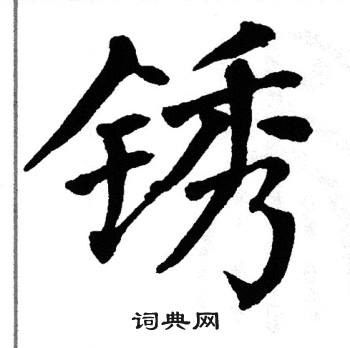 锈
词典网